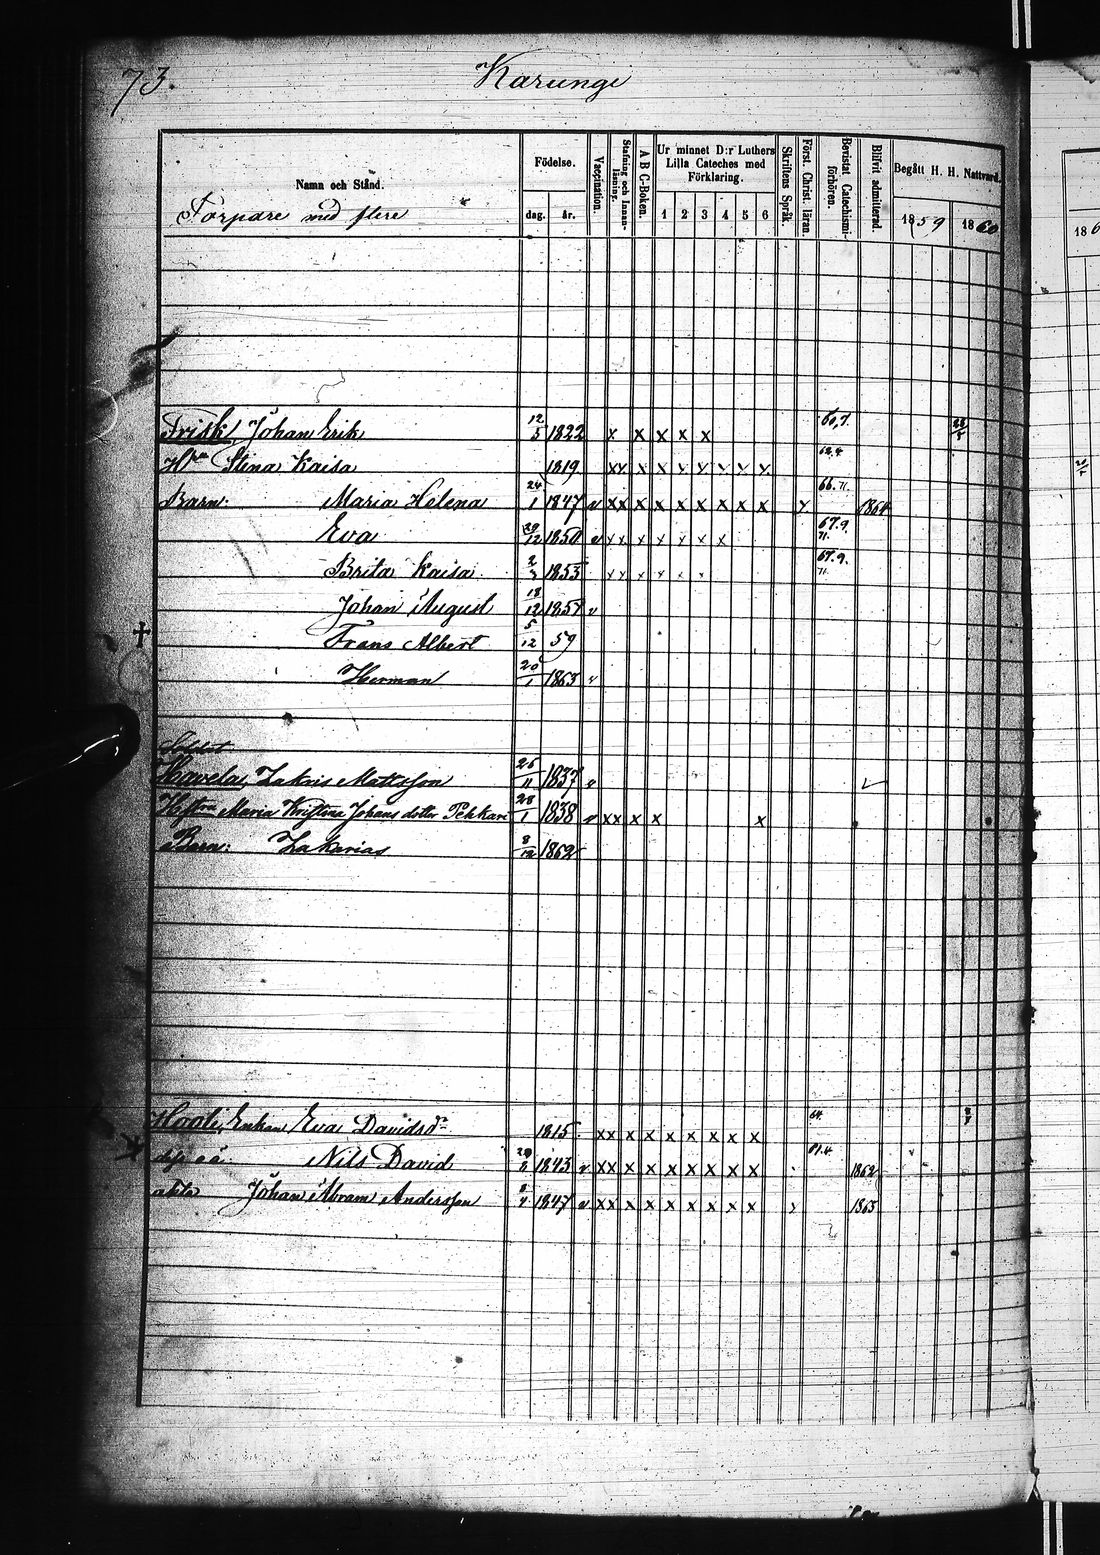 73.
Karungi
Namn och Stånd.
Torpare med flere
Födelse.
dag. år.
Vaccination.
Stafning och Innanläsning.
A B C-Boken.
Ur minnet D:r Luthers Lilla Cateches med Förklaring.
1 2 3 4 5 6
Skriftens Språk.
Först. Christ. läran.
Bevistat Catechismiförhören.
Blifvit admitterad.
Begått H. H. Nattvard.
1859 1860
Frisk, Johan Erik 12/3 1822 x x x x x 60,7.
Hu Stina Kaisa 1819 xx x x x x x x x
Barn: Maria Helena 24/1 1847 v xx x x x x x x x 66.71. 1864
Eva 29/12 1850 v xx x x x x x 67.9. 71.
Brita Kaisa 1853 xx x x x x 67.9. 71.
Johan August 18/12 1857 v
† Frans Albert 5/12 59
Herman 20/1 1863 v
Soldat
Havela, Zakris Mattsson 26/11 1837 v
Hustru Maria Kristina Johans dotter Pekkari 28/1 1838 v xx x x x
Barn: Zakarias 8/12 1862
Hooli, Enkan Eva Davidsdr 1815 xx x x x x x x 64
Nils David 1843 v xx x x x x x x 61.4 1862
Johan Abram Andersson 1847 v xx x x x x x x 1863